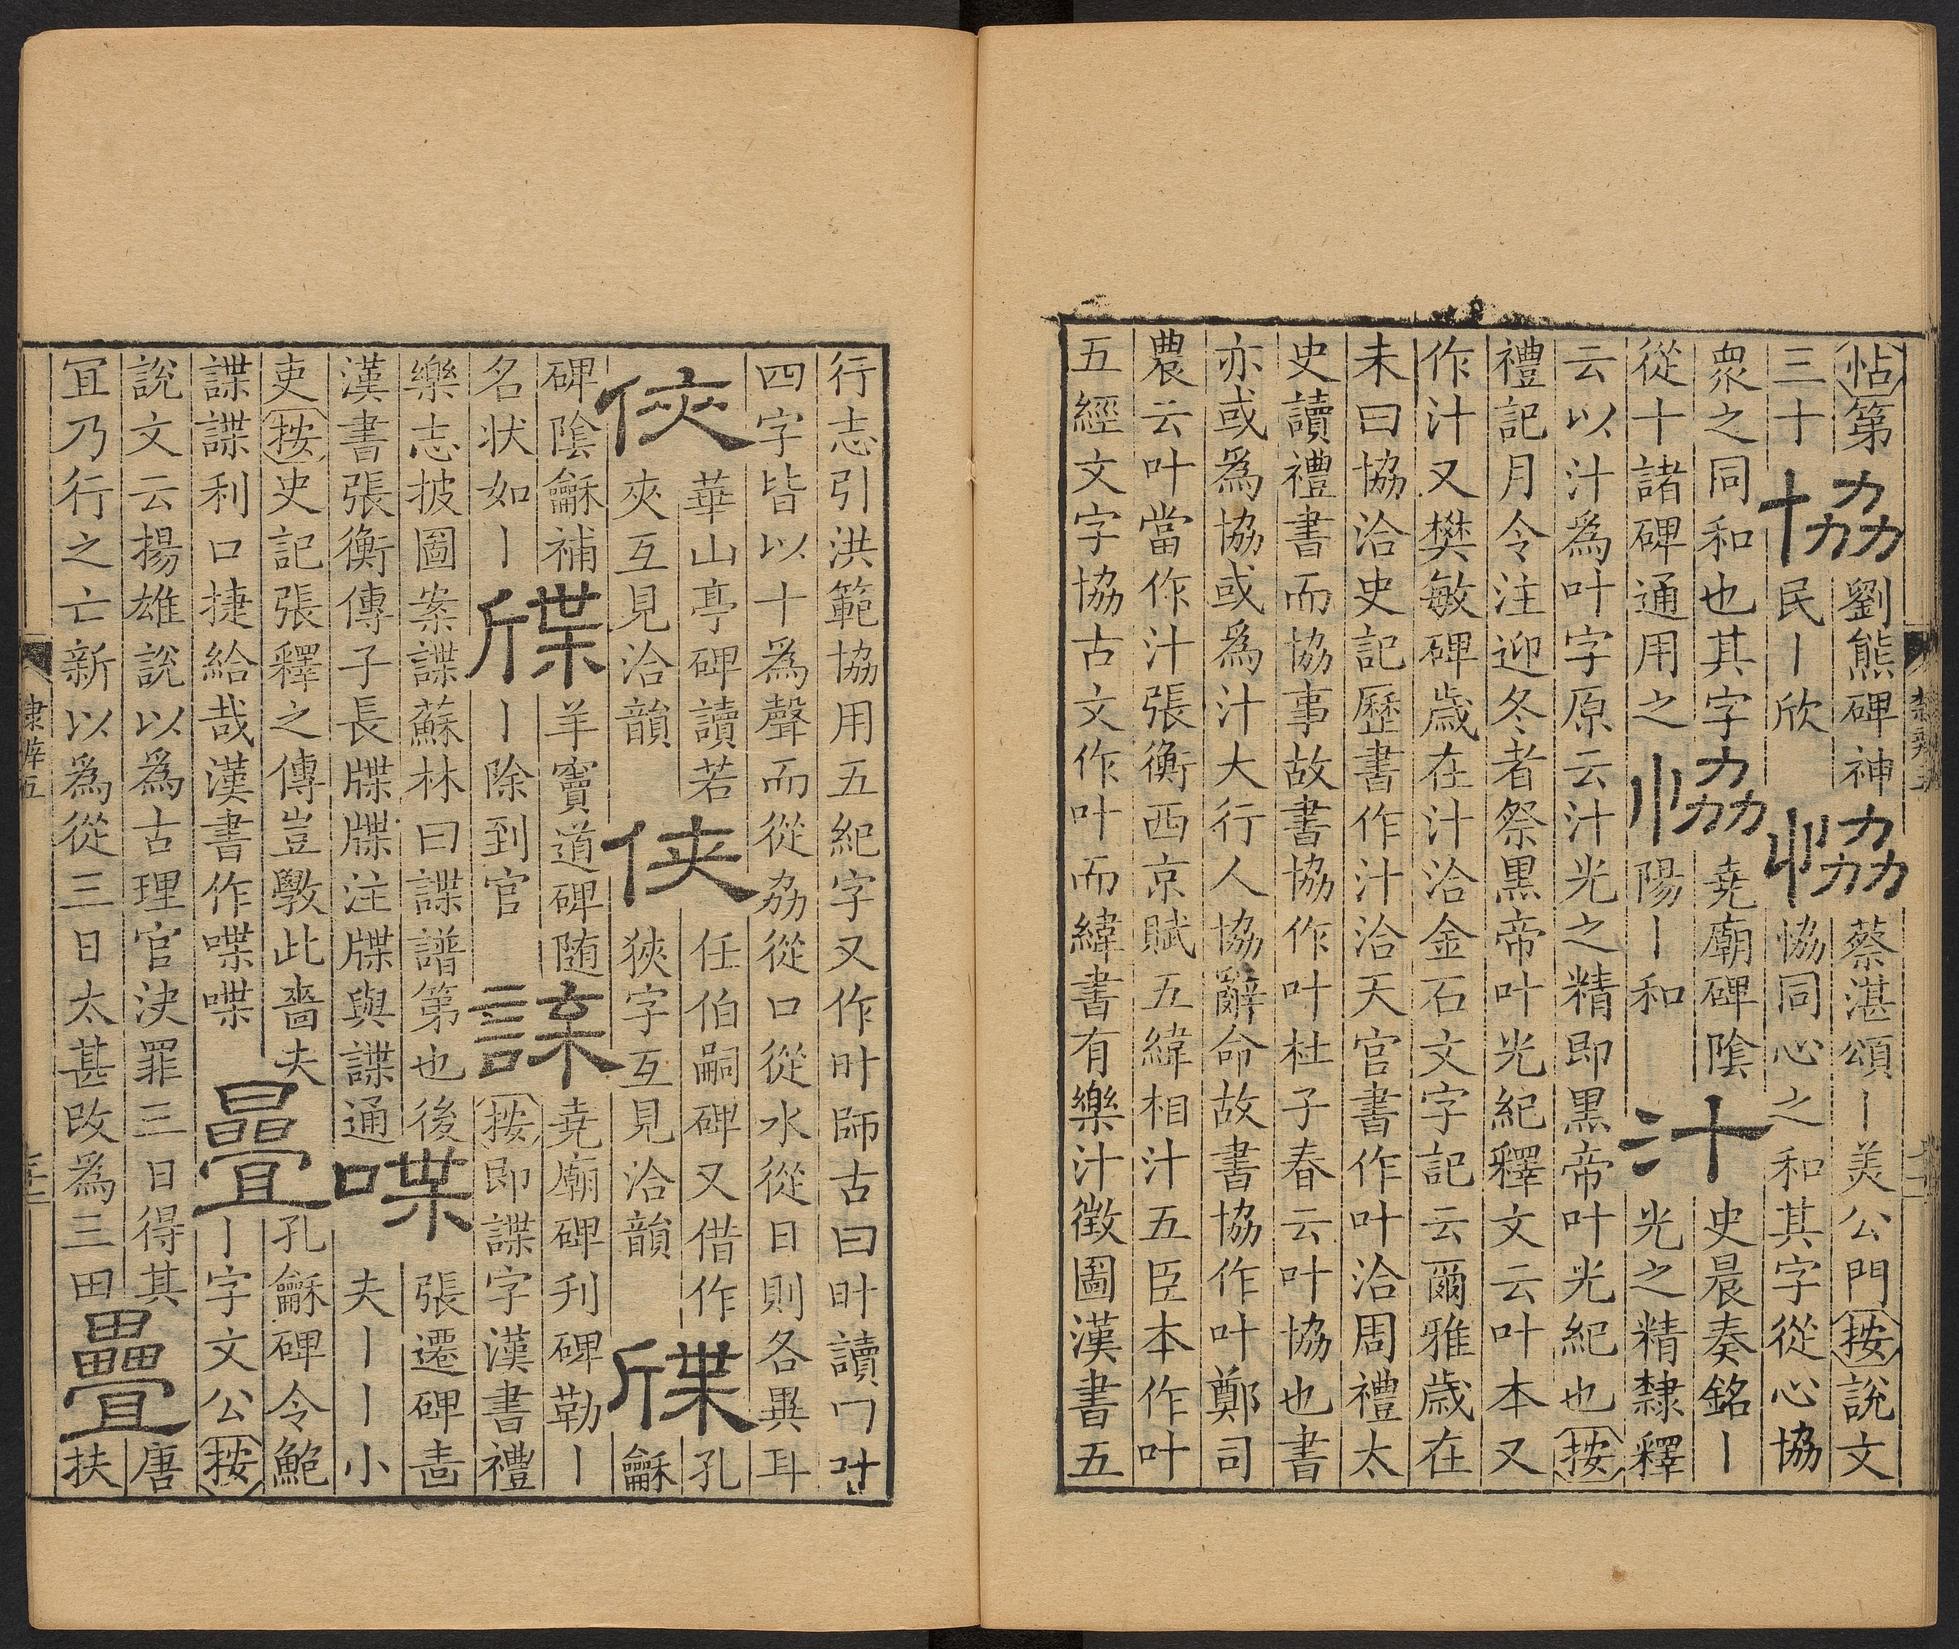 帖第
三十
協
劉熊碑神
民丨欣
恊
蔡湛頌丨美公門按說文
恊同心之和其字從心協
衆之同和也其字
從十諸碑通用之
恊
堯廟碑陰
陽丨和
汁
史晨奏銘丨
光之精隸釋
云以汁為叶字原云汁光之精即黒帝叶光紀也按
禮記月令注迎冬者祭黒帝叶光紀釋文云叶本又
作汁又樊敏碑歳在汁洽金石文字記云爾雅歳在
未曰協洽史記歷書作汁洽天官書作叶洽周禮太
史讀禮書而協事故書協作叶杜子春云叶協也書
亦或為協或為汁大行人協辭命故書協作叶鄭司
農云叶當作汁張衡西京賦五緯相汁五臣本作叶
五經文字協古文作叶而緯書有樂汁徴圖漢書五
行志引洪範協用五紀字又作旪師古曰旪讀曰叶
四字皆以十為聲而從劦從口從水從日則各異耳
俠
華山亭碑讀若
夾互見洽韻
俠
任伯嗣碑又借作
狹字互見洽韻
牒
孔
龢
碑陰龢補
名状如丨
牒
羊竇道碑随
丨除到官
諜
堯廟碑刋碑勒丨
按即諜字漢書禮
樂志披圖案諜蘇林曰諜譜第也後
漢書張衡傳子長牒牒注牒與諜通
喋
張遷碑嗇
夫丨丨小
吏按史記張釋之傳豈斆此嗇夫
諜諜利口捷給哉漢書作喋喋
疊
孔龢碑令鮑
丨字文公按
說文云揚雄說以為古理官決罪三日得其
冝乃行之亡新以為從三日太甚改為三田
疊
唐
扶
隸辨五